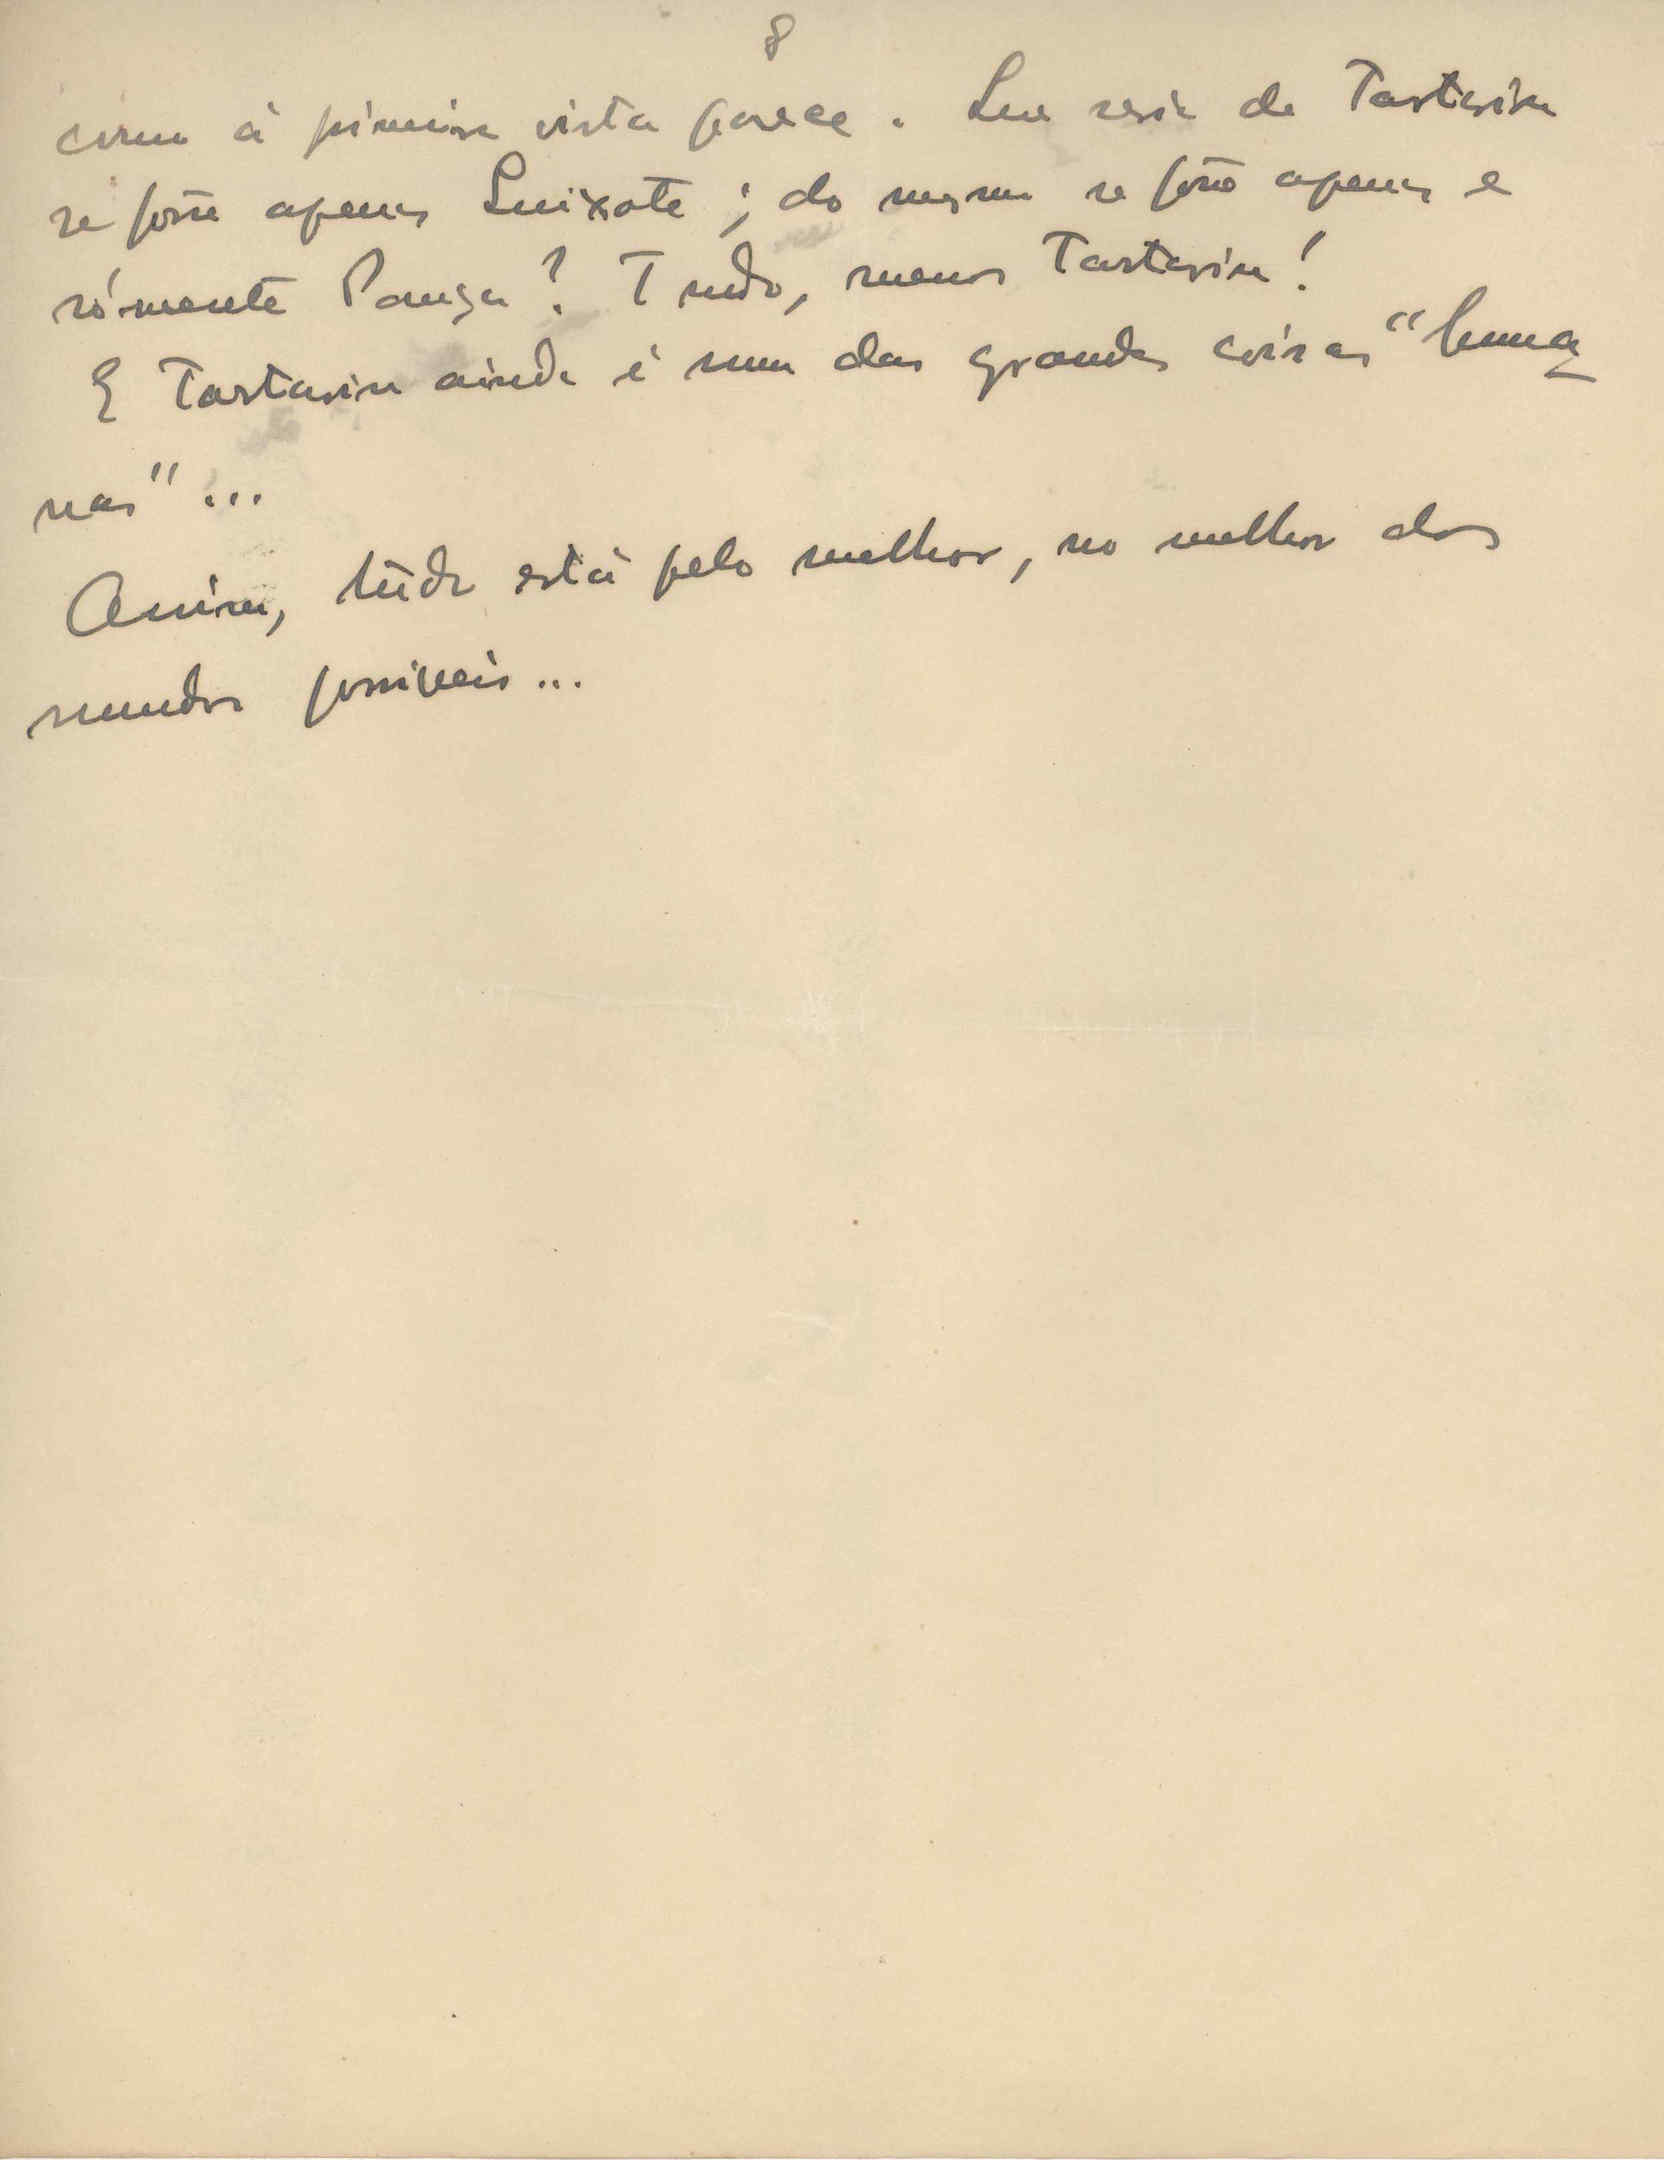 8
como à primeira vista parece. Que seria de Tartarin
se fôsse apenas Quixote; do mesmo se fôsse apenas e
sómente Pança? Tudo, menos Tartarin!
E Tartarin ainda é uma das grandes coisas "huma
nas"...
Assim, tudo está pelo melhor, no melhor dos
mundos possiveis...